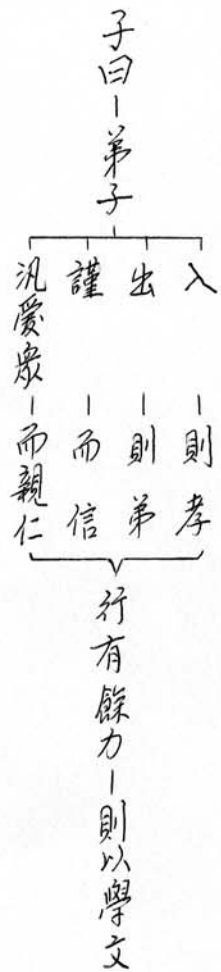 子曰－弟子
入－則孝
出－則弟
謹－而信
汎愛衆－而親仁
行有餘力－則以學文